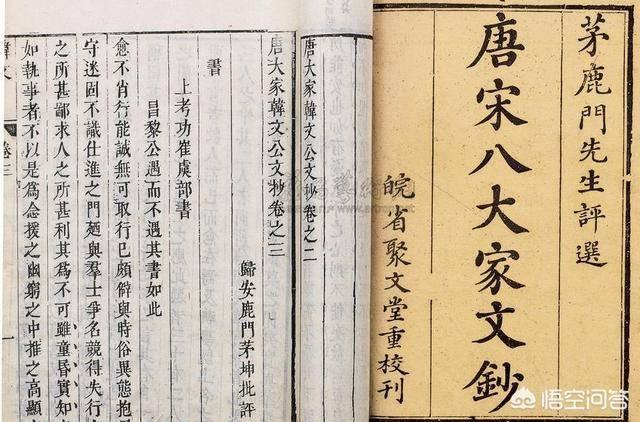 茅鹿門先生評選
唐宋八大家文鈔
皖省聚文堂重校刊
唐大家韓文公文抄卷之二
唐大家韓文公文抄卷之三
歸安鹿門茅坤批評
書
上考功崔虞部書
昌黎公遇而不遇其書如此
愈不肖行能誠無可取行已頗僻與時俗異態抱愚
守迷固不識仕進之門廼與羣士爭名競得失行人
之所甚鄙求人之所甚利其為不可雖童昏實知之
如執事者不以是為念援之幽窮之中推之高顯之
韓文
卷三
一
悟空问答